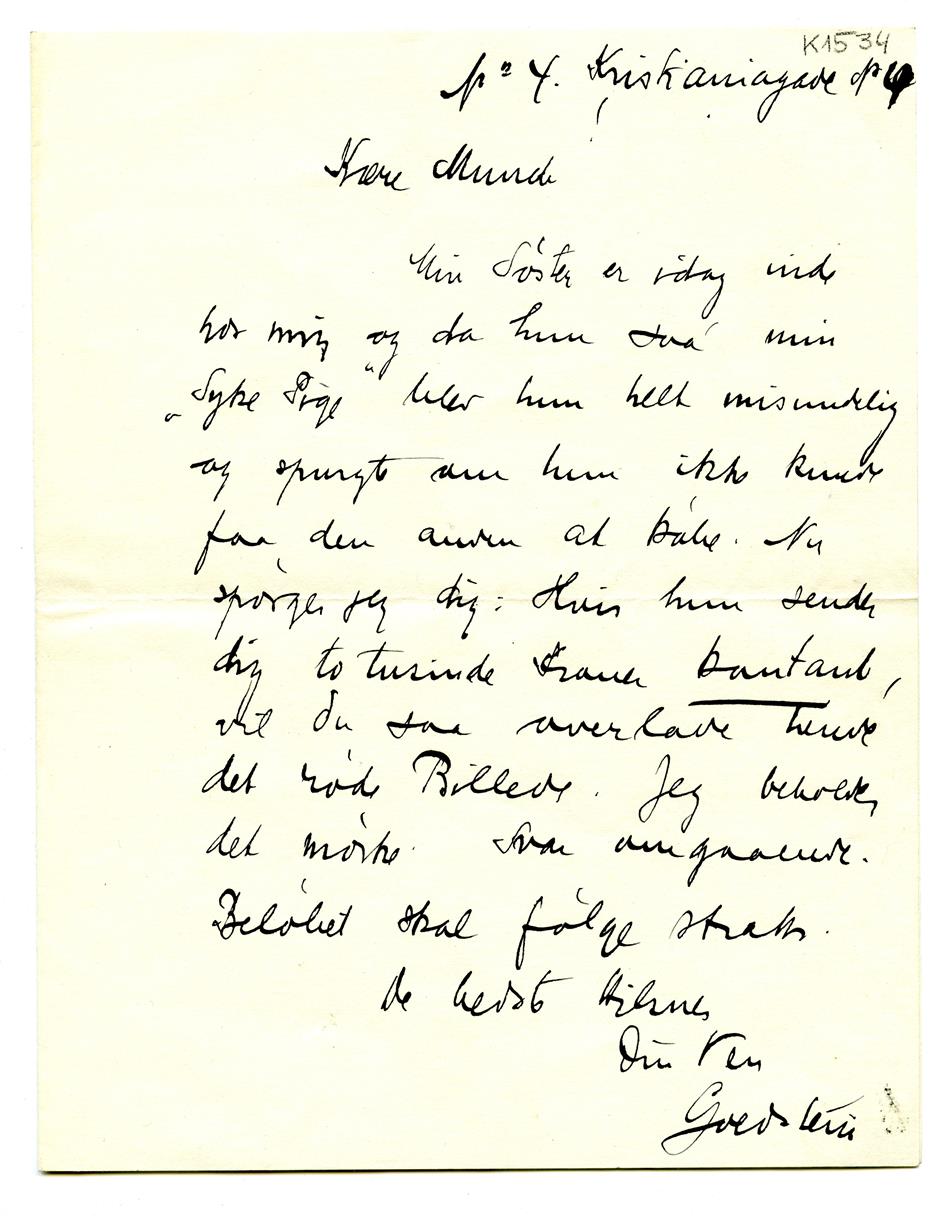 K1534
No 4. Kristianiagade No 4
Kære Munch
Min Søster er idag inde
hos mig og da hun saa min
„Syke Pige" blev hun helt misundelig
og spurgte om hun ikke kunde
faa den anden at købe. Nu
spørger jeg dig: Hvis hun sender
dig to tusinde Kroner kontant,
vil du saa overlade hende
det røde Billede. Jeg beholder
det mørke. Svar omgaaende.
Beløbet skal følge straks.
De bedste Hilsner
Din Ven
Goldstein